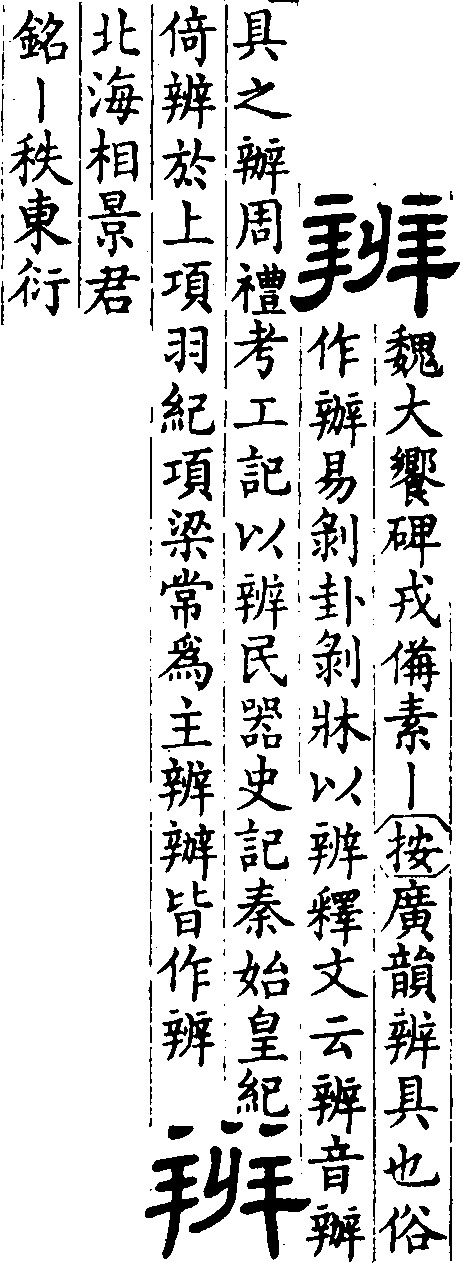 辨
魏大饗碑戎備素丨按廣韻辨具也俗
作辦易剝卦剝牀以辨釋文云辨音辦
具之辦周禮考工記以辨民器史記秦始皇紀
倚辨於上項羽紀項梁常爲主辨辦皆作辨
辨
北海相景君
銘丨秩東衍